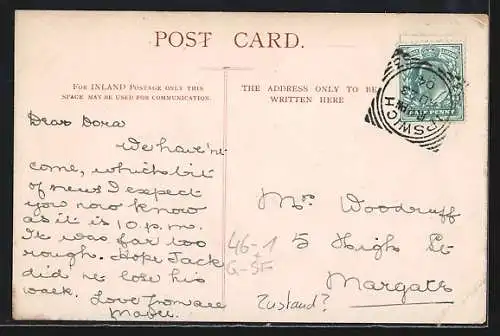 POST CARD.
FOR INLAND POSTAGE ONLY THIS
SPACE MAY BE USED FOR COMMUNICATION.
THE ADDRESS ONLY TO BE
WRITTEN HERE
HALFPENNY
IPSWICH
04
Dear Dora
We have n't
come, which bit
of news I expect
you now know
as it is 10 p.m.
It was far too
rough. Hope Jack
did n't lose his
walk. Love from all
Mabel.
Mrs Woodruff
5 High St
Margate
46-1
+
G-SF
Zustand?